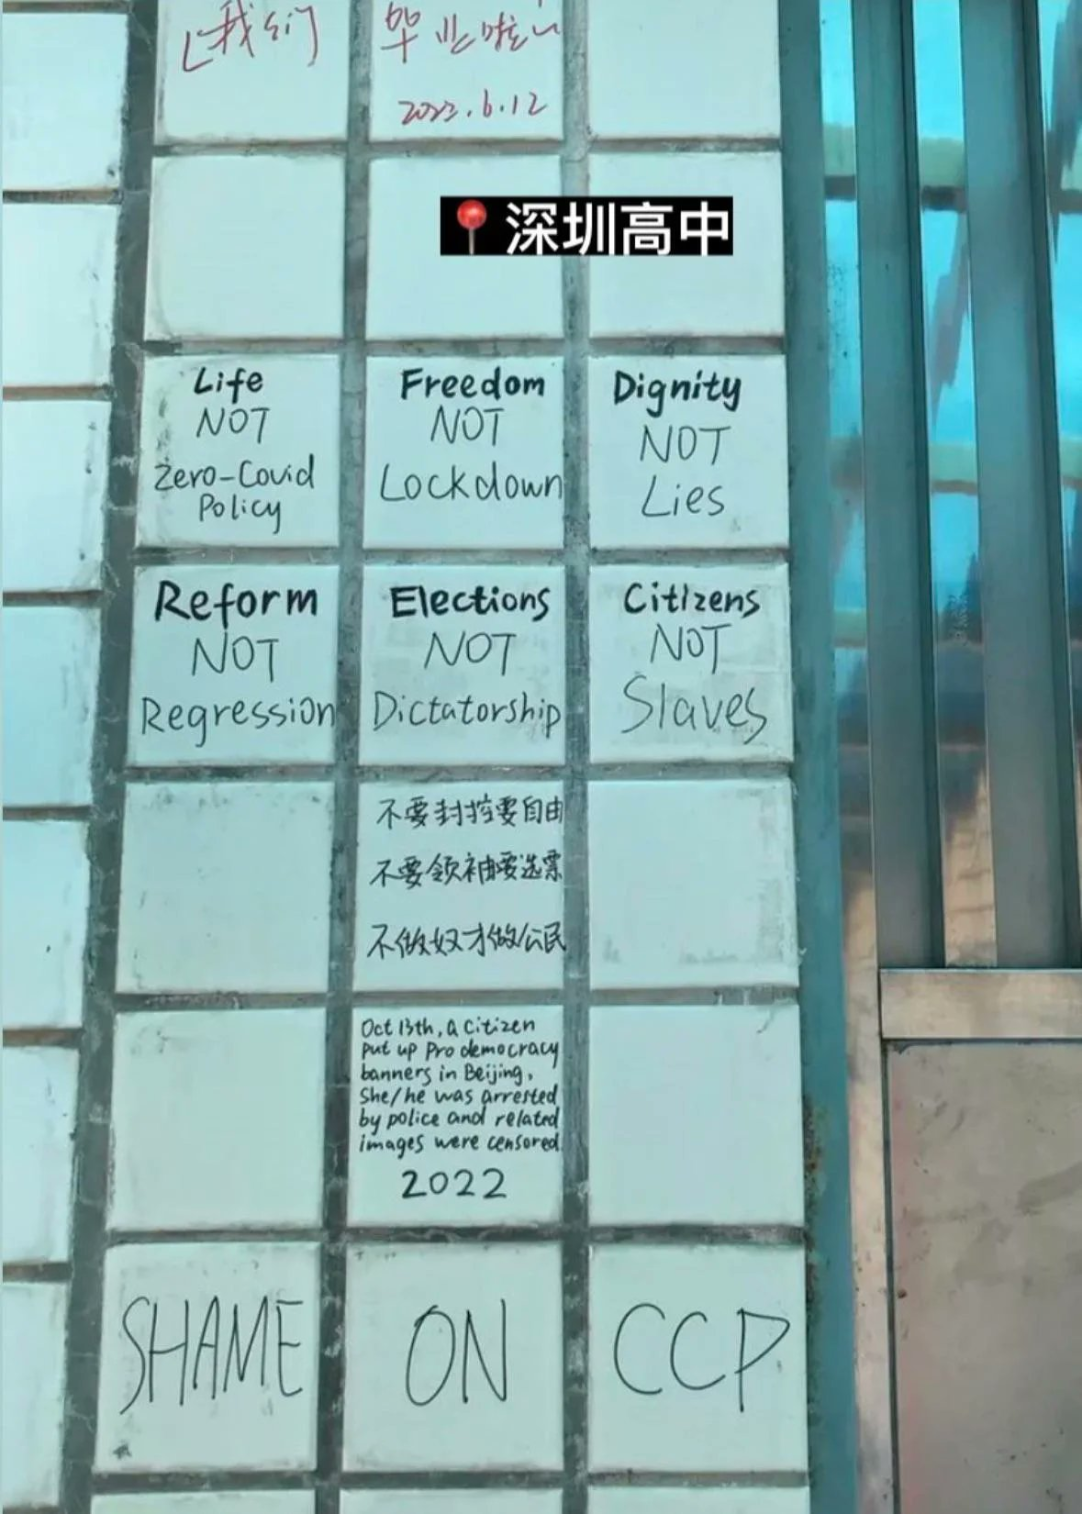 我们
毕业啦
2022.6.12
深圳高中
Life
NOT
Zero-Covid
Policy
Freedom
NOT
Lockdown
Dignity
NOT
Lies
Reform
NOT
Regression
Elections
NOT
Dictatorship
Citizens
NOT
Slaves
不要封控要自由
不要领袖要选票
不做奴才做公民
Oct 13th, a citizen
put up Pro democracy
banners in Beijing,
She/he was arrested
by police and related
images were censored.
2022
SHAME
ON
CCP